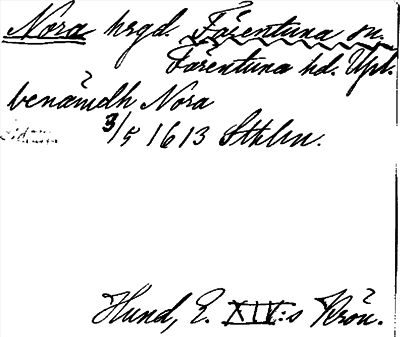 Nora hrgd. Färentuna sn.
Färentuna hd. Upl.
benämdh Nora
3/5 1613 Sthlm.
Hund, E. XIV:s Krön.